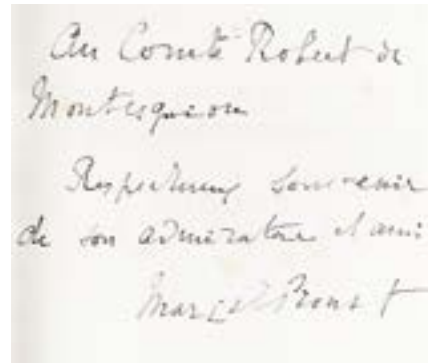 Au Comte Robert de
Montesquiou
Respectueux souvenir
de son admirateur et ami
Marcel Proust